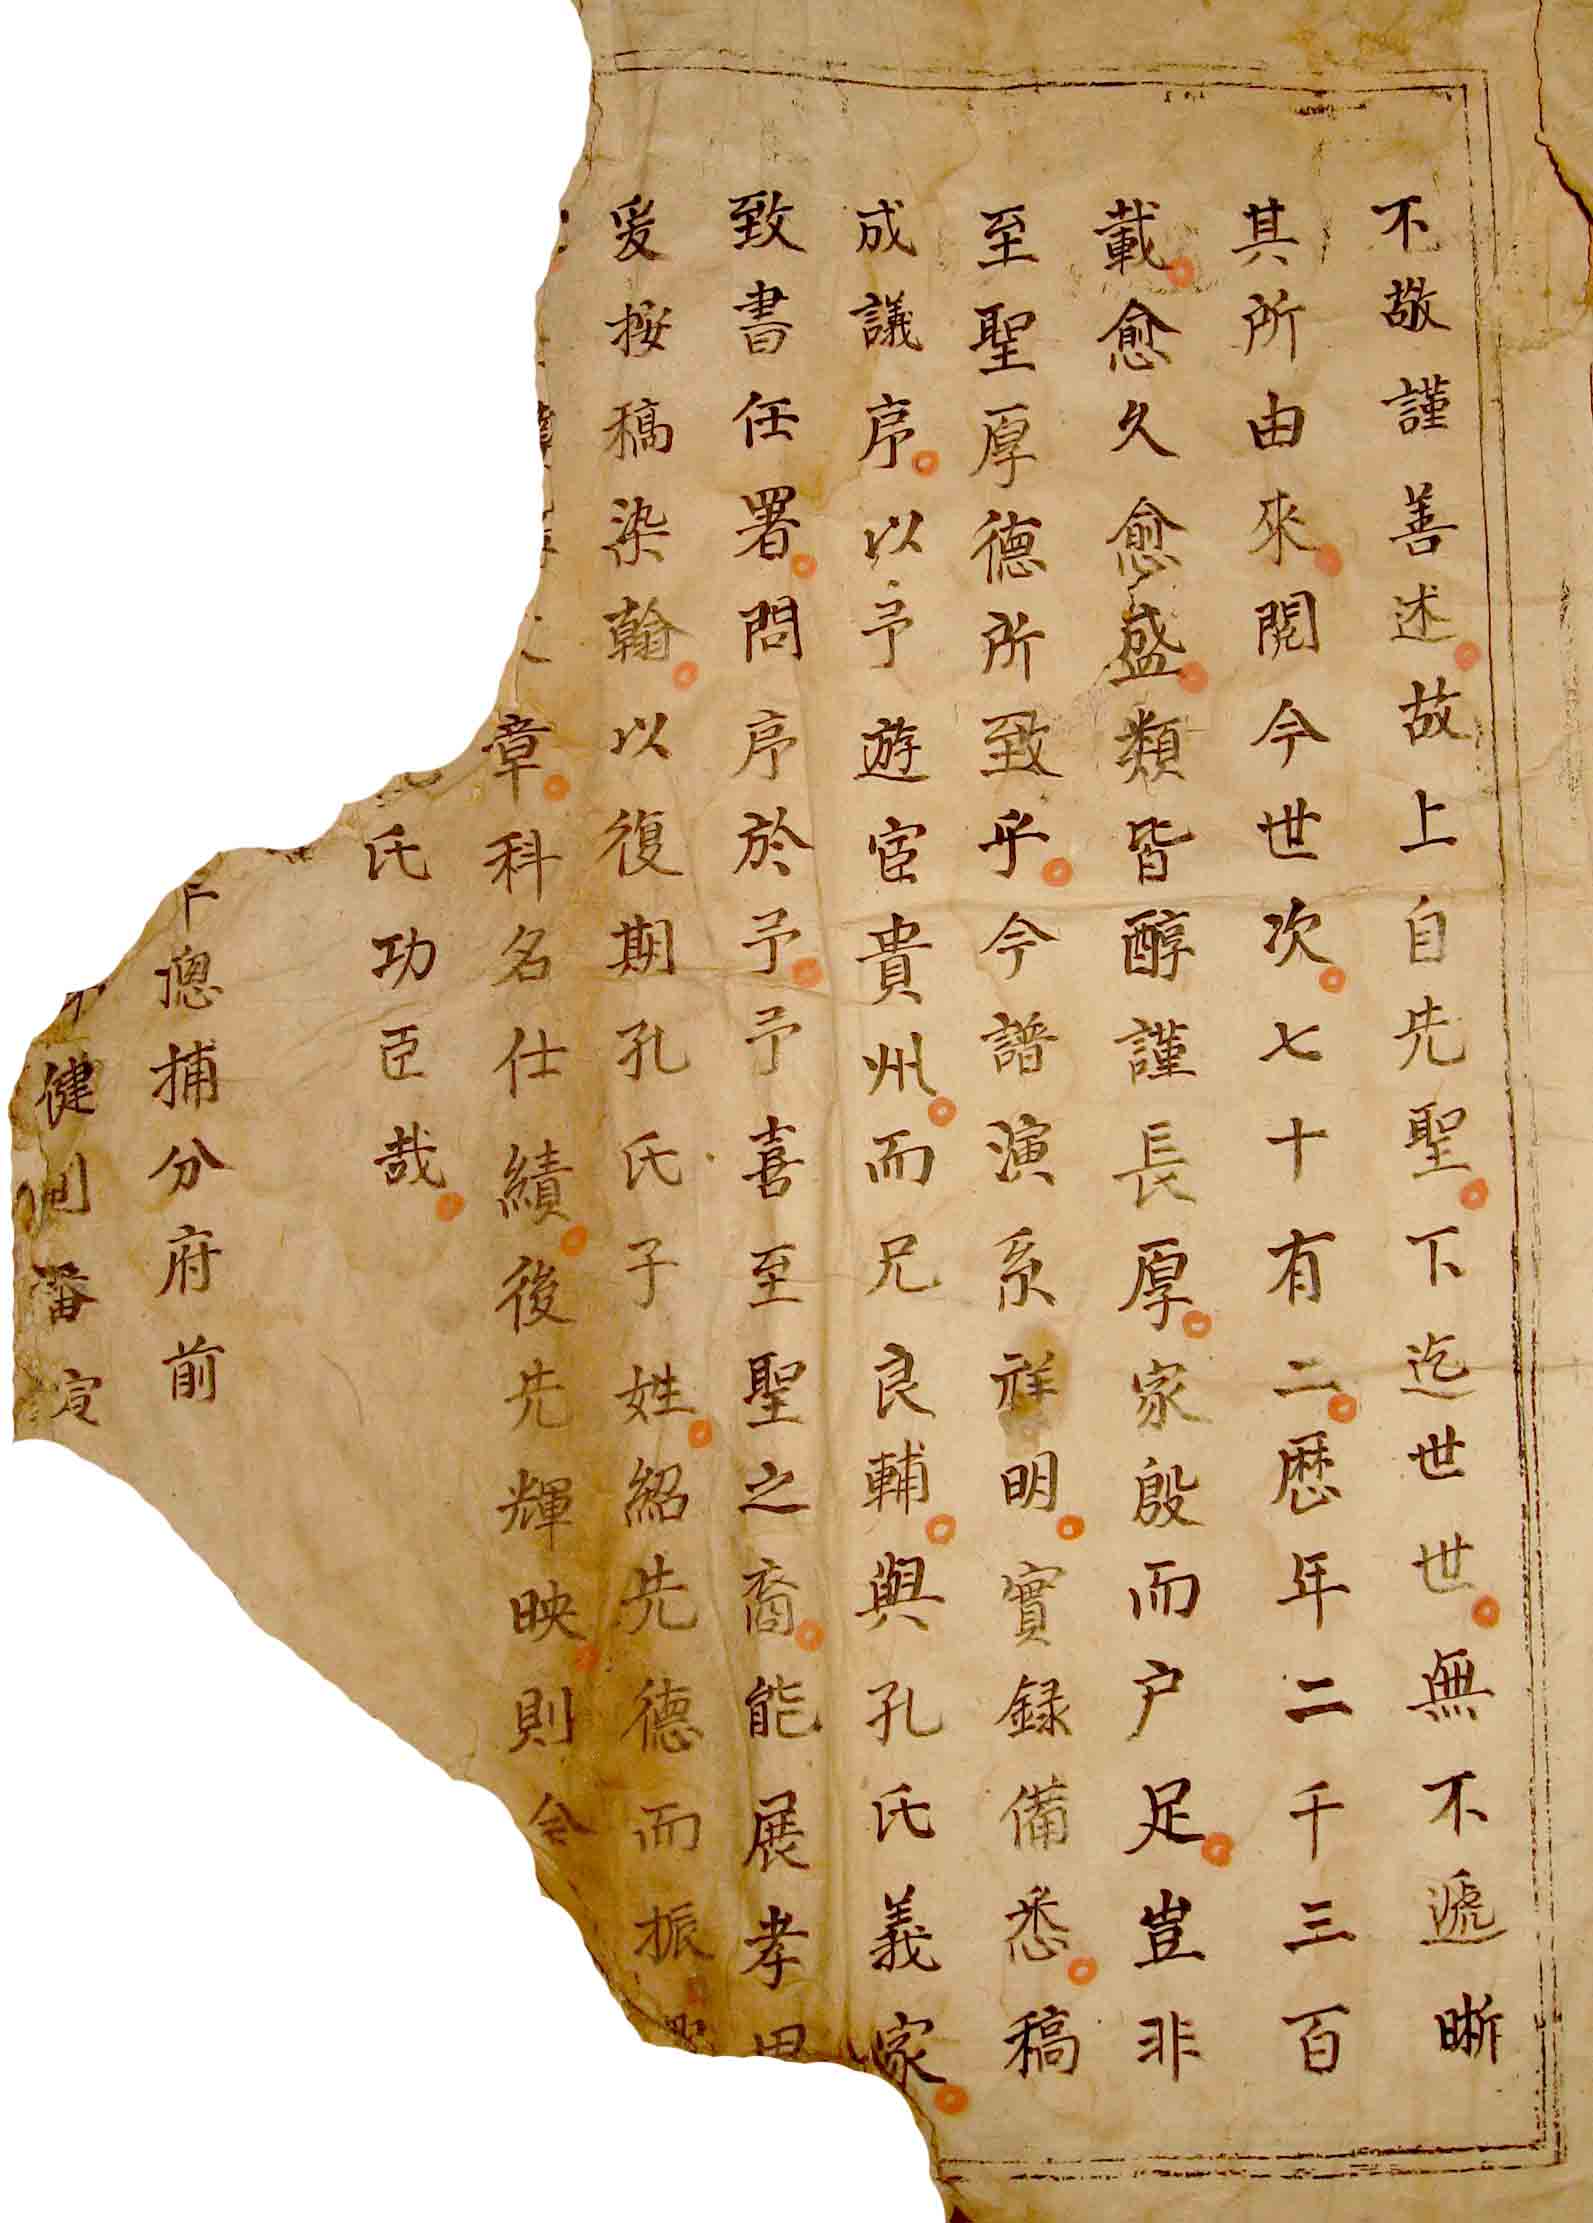 不敢謹善述故上自先聖下迄世世無不遞晣
其所由來閱今世次七十有二歴年二千三百
載愈久愈盛類皆醇謹長厚家殷而户足豈非
至聖厚德所致乎今譜演系祥明實録備悉稿
成議序以予遊宦貴州而兄良輔與孔氏義家
致書任署問序於予予喜至聖之裔能展孝思
爰按稿染翰以復期孔氏子姓紹先德而振
章科名仕績後先輝映則令
氏功臣哉
總捕分府前
健
審